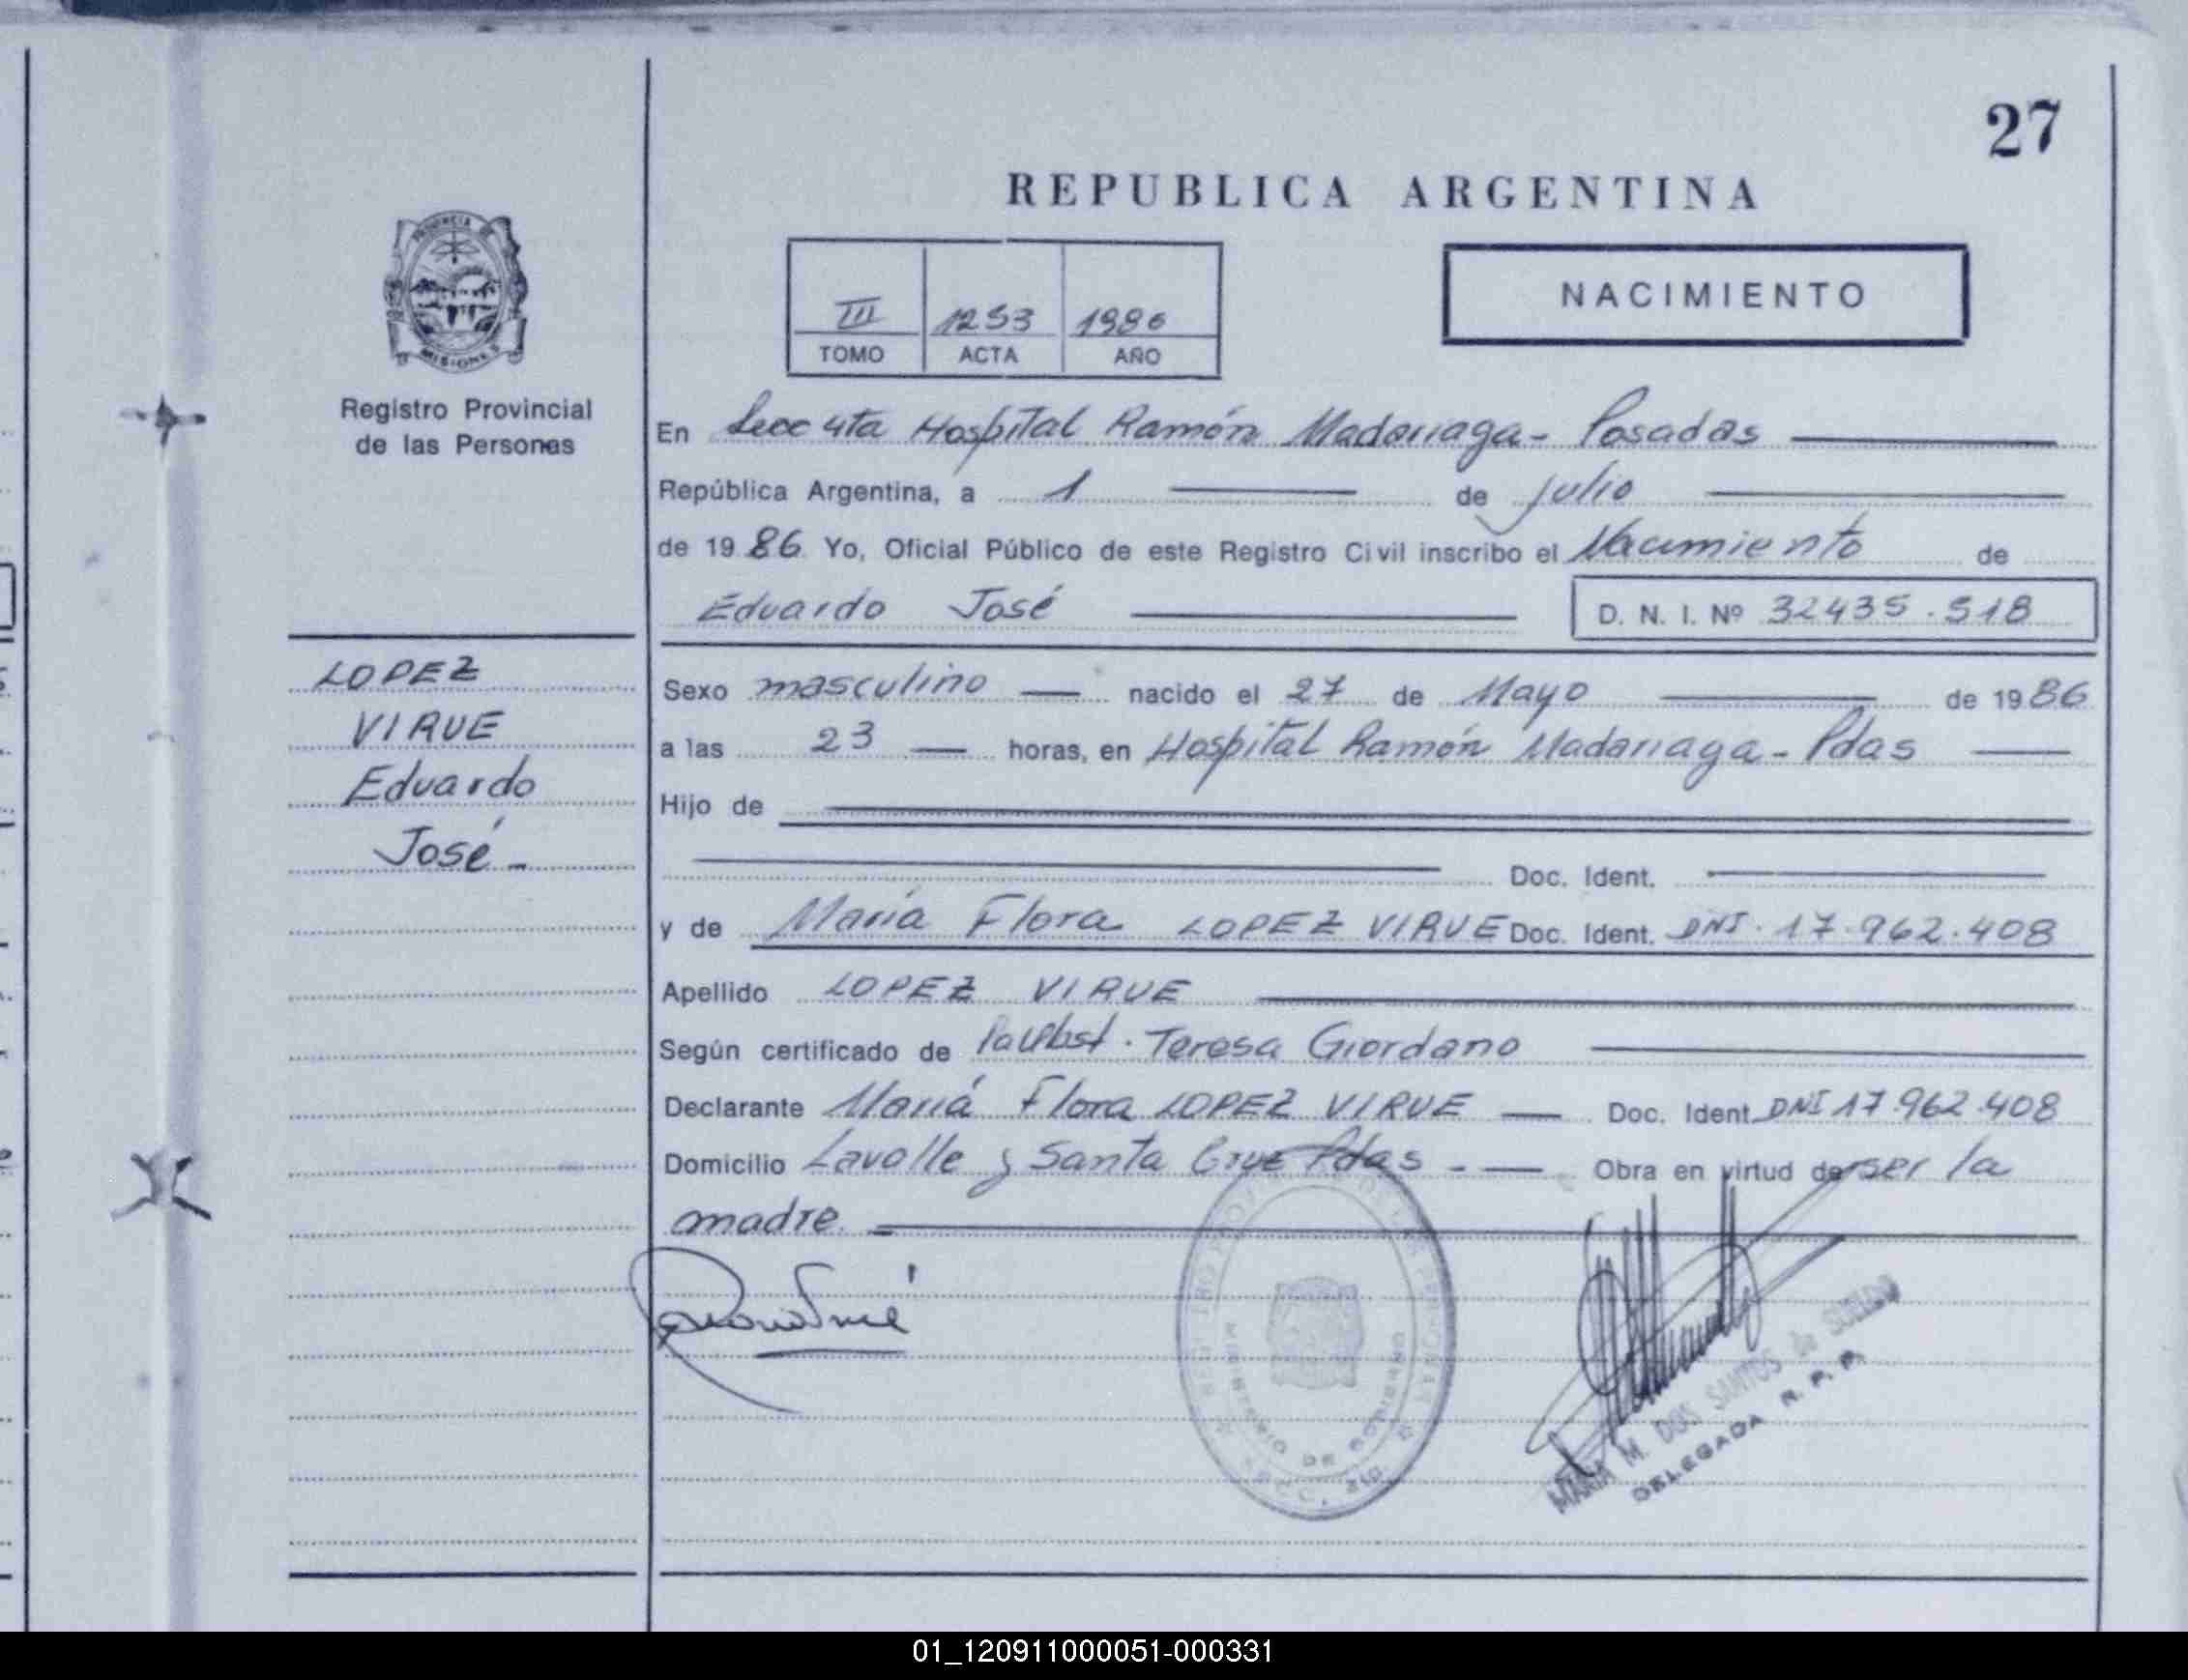 27
REPUBLICA ARGENTINA
PROVINCIA DE
MISIONES
Registro Provincial
de las Personas
III 1253 1986
TOMO ACTA AÑO
NACIMIENTO
En Secc 4ta Hospital Ramón Madariaga - Posadas
República Argentina, a 1 de Julio
de 19 86 Yo, Oficial Público de este Registro Civil inscribo el Nacimiento de
Eduardo José D. N. I. Nº 32435.518
LOPEZ
VIRUE
Eduardo
José -
Sexo masculino nacido el 27 de Mayo de 19 86
a las 23 horas, en Hospital Ramón Madariaga - Pdas
Hijo de
Doc. Ident.
y de María Flora LOPEZ VIRUE Doc. Ident. DNI. 17.962.408
Apellido LOPEZ VIRUE
Según certificado de Teresa Giordano
Declarante María Flora LOPEZ VIRUE Doc. Ident. DNI 17.962.408
Domicilio Lavalle y Santa Cruz Pdas - Obra en virtud de ser la
madre.
MINISTERIO DE GOBIERNO
MARIA M. DOS SANTOS de SUELDO
DELEGADA R. P. P.
01_120911000051-000331